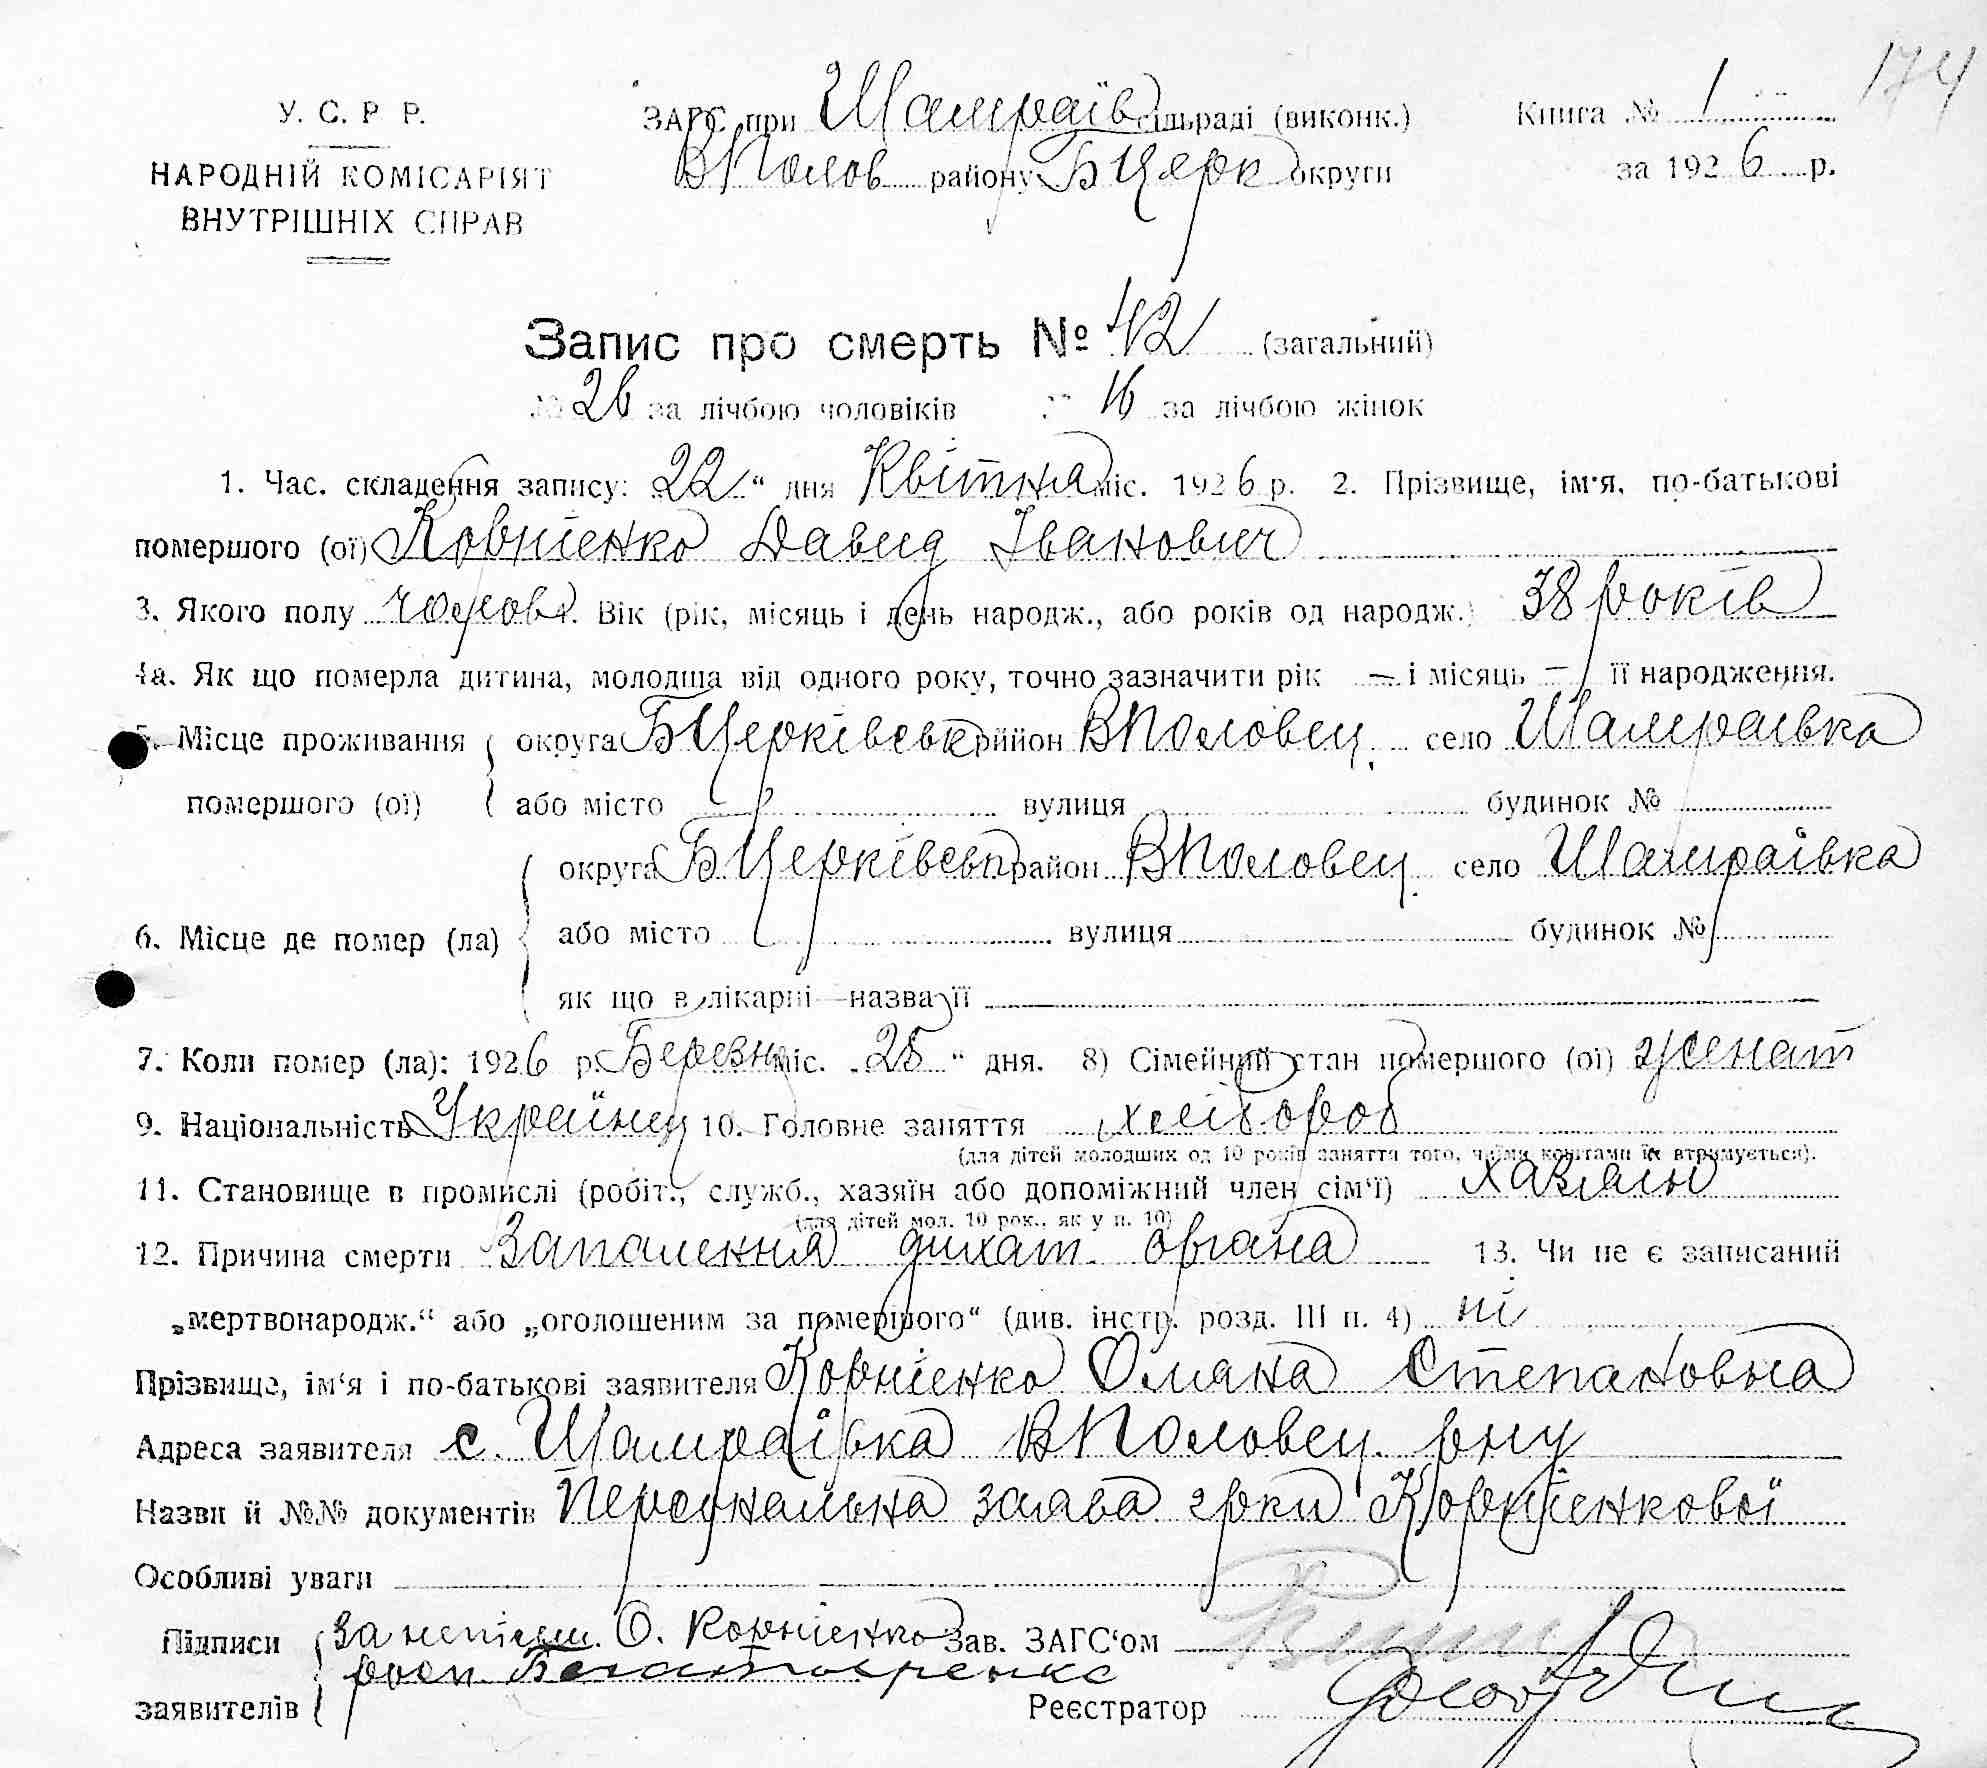 174
У. С. Р Р.
НАРОДНІЙ КОМІСАРІЯТ
ВНУТРІШНІХ СПРАВ
ЗАГС при Шамраїв сільраді (виконк.)
ВПолов району БЦерк округи
Книга № 1
за 1926 р.
Запис про смерть № 42 (загальний)
№ 26 за лічбою чоловіків № 16 за лічбою жінок
1. Час. складення запису: 22 " дня Квітня міс. 1926 р. 2. Прізвище, ім'я, по-батькові
помершого (ої) Корнієнко Давид Іванович
3. Якого полу чолов 4. Вік (рік, місяць і день народж., або років од народж.) 38 років
4а. Як що померла дитина, молодша від одного року, точно зазначити рік — і місяць — її народження.
5. Місце проживання округа БЦерківськ район ВПоловец. село Шамраївка
помершого (ої) або місто вулиця будинок №
округа БЦерківськ район ВПоловец. село Шамраівка
6. Місце де помер (ла) або місто вулиця будинок №
як що в лікарні—назва її
7. Коли помер (ла): 1926 р. Березня міс. „25" дня. 8) Сімейний стан помершого (ої) женат
9. Національність Українец 10. Головне заняття хлібороб
(для дітей молодших од 10 років заняття того, чиїми коштами їх втримується).
11. Становище в промислі (робіт., служб., хазяїн або допоміжний член сім'ї) хазяін
(для дітей мол. 10 рок., як у п. 10)
12. Причина смерти Запалення дихат. органа 13. Чи не є записаний
„мертвонародж." або „оголошеним за помершого" (див. інстр. розд. III п. 4) ні
Прізвище, ім'я і по-батькові заявителя Корнієнко Оляна Степановна
Адреса заявителя с. Шамраівка ВПоловец. рну
Назви й №№ документів Персунальна заява гр-ки Корнієнкової
Особливі уваги
Підписи За неписьм. О. Корнієнко Зав. ЗАГС'ом
росп.
заявителів Реєстратор